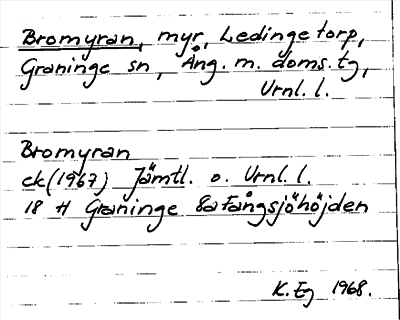 Bromyran, myr, Ledingetorp,
Graninge sn, Ång. m. doms. tg,
Vrnl. l.
Bromyran
ek(1967) Jämtl. o. Vrnl. l.
18 H Graninge 8a Fångsjöhöjden
K. Eg 1968.